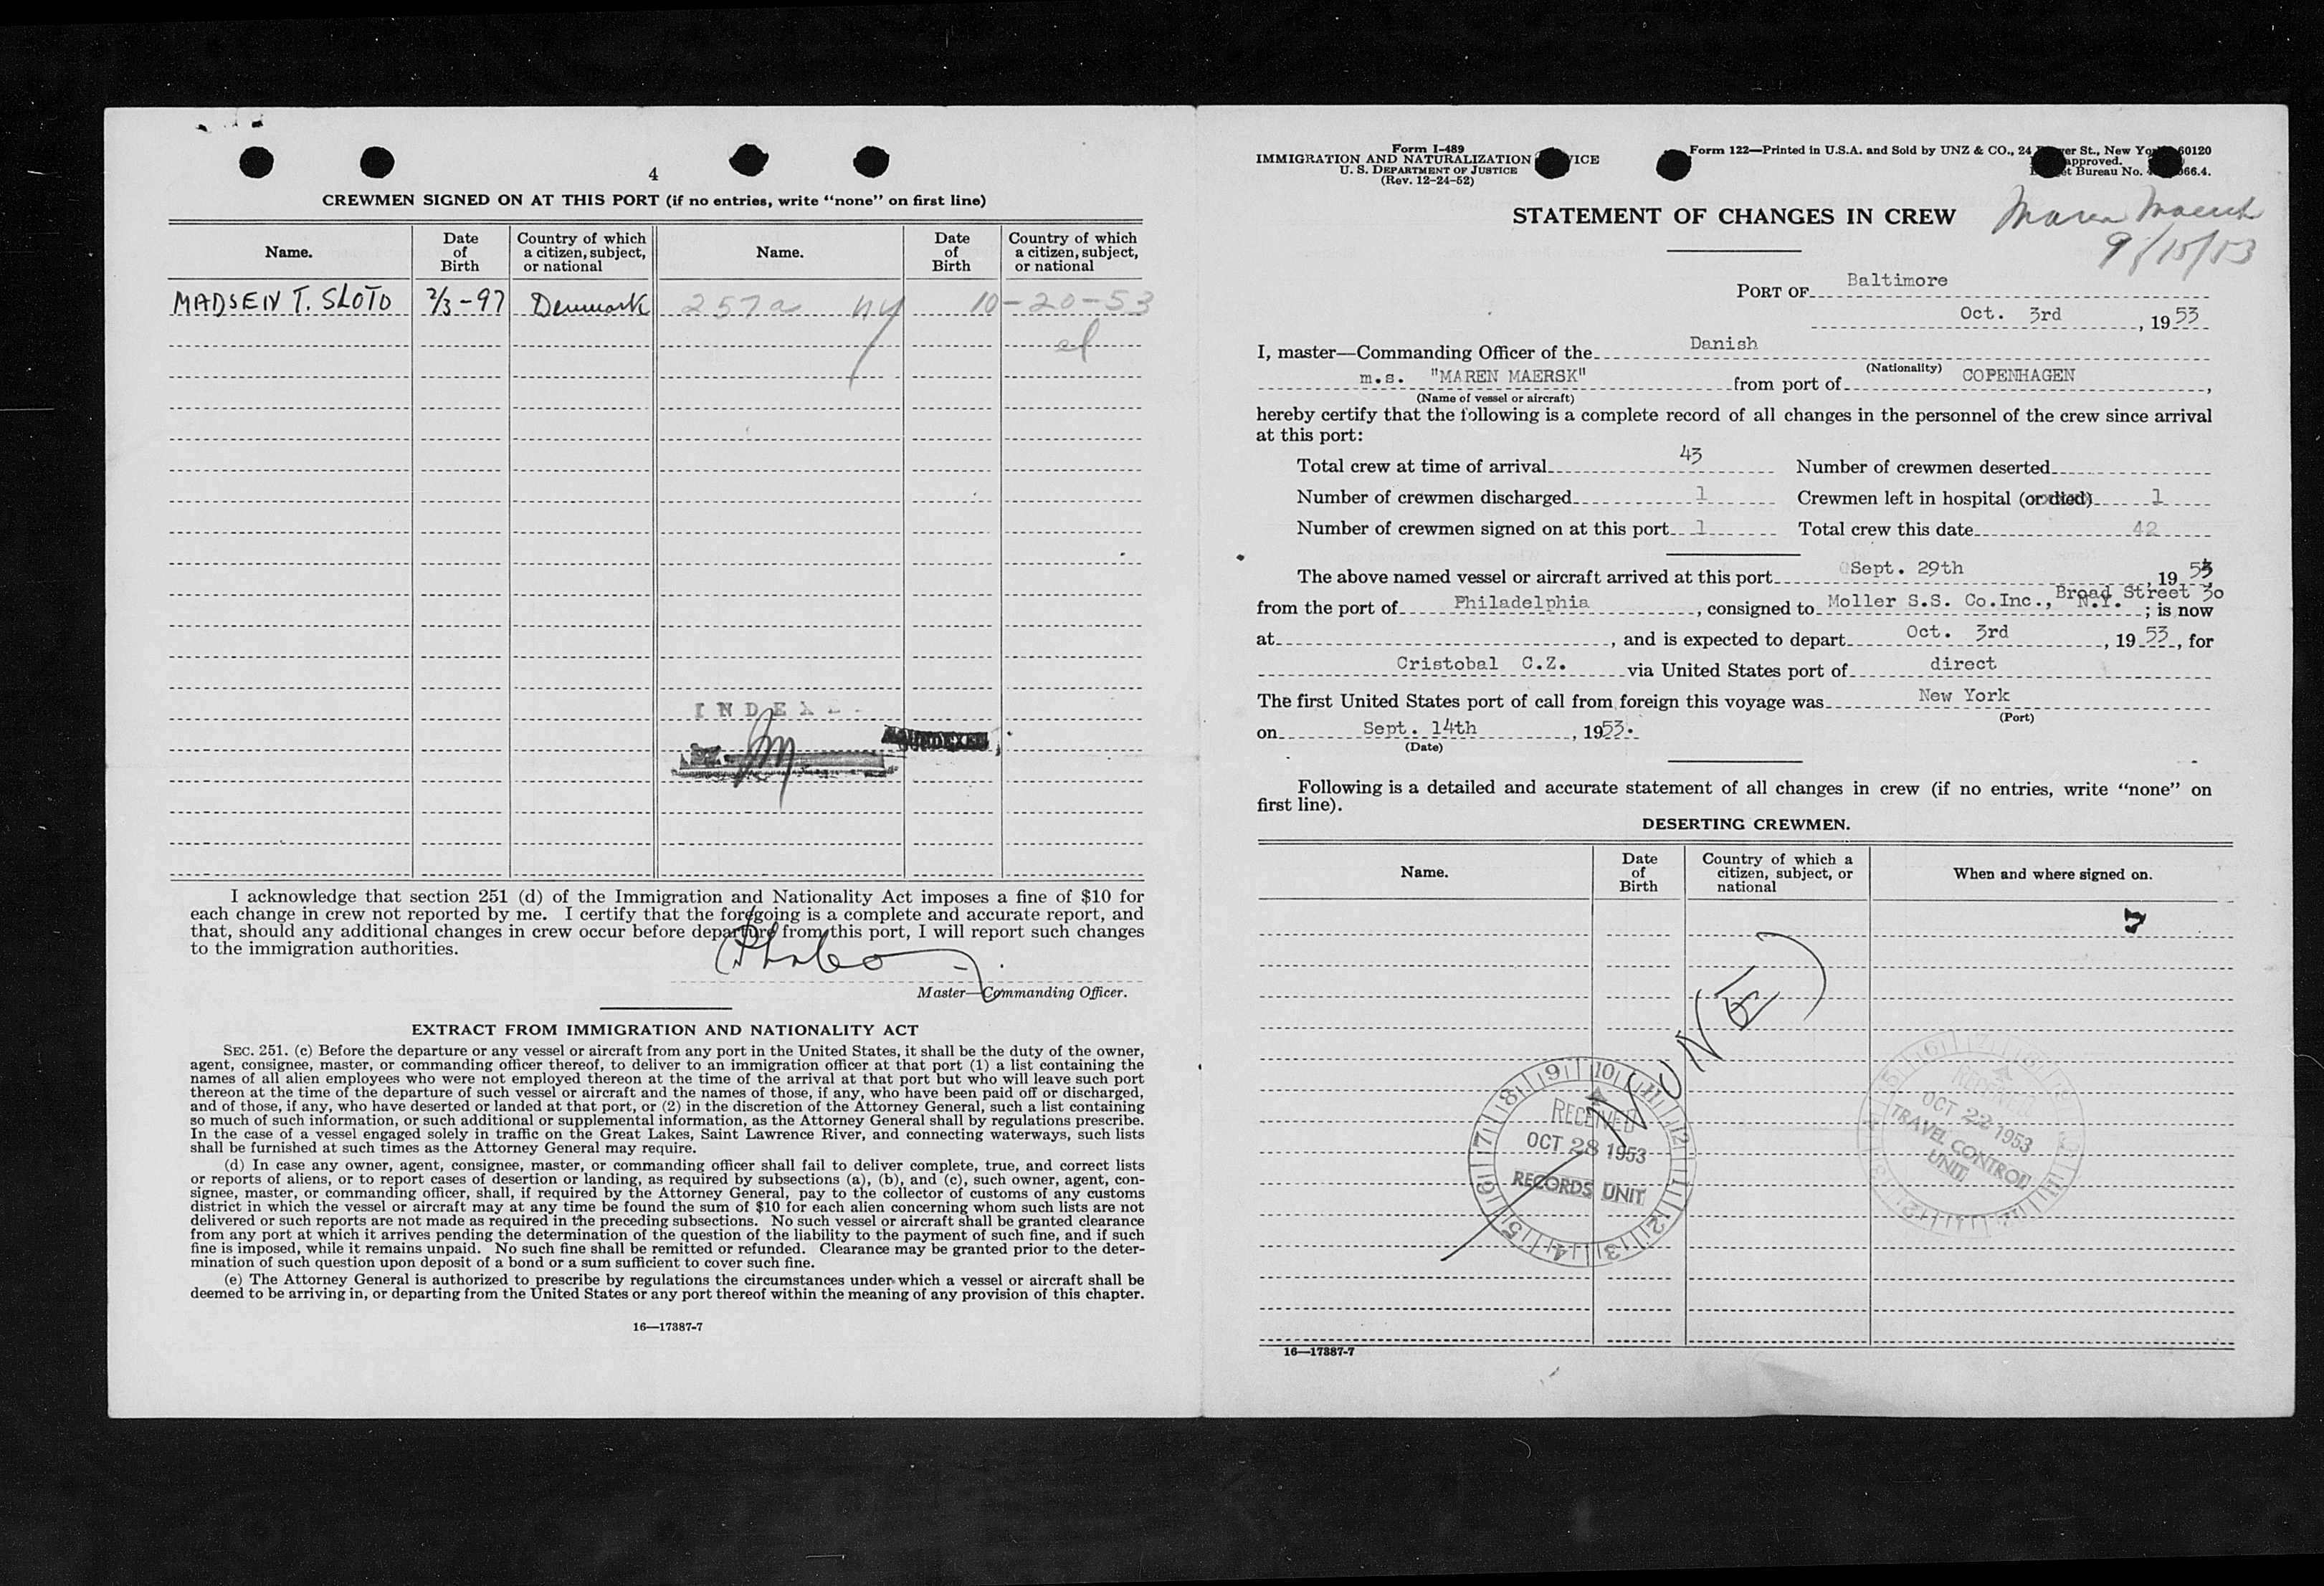 4
CREWMEN SIGNED ON AT THIS PORT (if no entries, write “none” on first line)
Name. Date of Birth Country of which a citizen, subject, or national Name. Date of Birth Country of which a citizen, subject, or national
MADSEN T. SLOTO 2/3-97 Denmark 257a NY 10-20-53
el
INDEX
I acknowledge that section 251 (d) of the Immigration and Nationality Act imposes a fine of $10 for
each change in crew not reported by me. I certify that the foregoing is a complete and accurate report, and
that, should any additional changes in crew occur before departure from this port, I will report such changes
to the immigration authorities.
Master—Commanding Officer.
EXTRACT FROM IMMIGRATION AND NATIONALITY ACT
SEC. 251. (c) Before the departure or any vessel or aircraft from any port in the United States, it shall be the duty of the owner,
agent, consignee, master, or commanding officer thereof, to deliver to an immigration officer at that port (1) a list containing the
names of all alien employees who were not employed thereon at the time of the arrival at that port but who will leave such port
thereon at the time of the departure of such vessel or aircraft and the names of those, if any, who have been paid off or discharged,
and of those, if any, who have deserted or landed at that port, or (2) in the discretion of the Attorney General, such a list containing
so much of such information, or such additional or supplemental information, as the Attorney General shall by regulations prescribe.
In the case of a vessel engaged solely in traffic on the Great Lakes, Saint Lawrence River, and connecting waterways, such lists
shall be furnished at such times as the Attorney General may require.
(d) In case any owner, agent, consignee, master, or commanding officer shall fail to deliver complete, true, and correct lists
or reports of aliens, or to report cases of desertion or landing, as required by subsections (a), (b), and (c), such owner, agent, con-
signee, master, or commanding officer, shall, if required by the Attorney General, pay to the collector of customs of any customs
district in which the vessel or aircraft may at any time be found the sum of $10 for each alien concerning whom such lists are not
delivered or such reports are not made as required in the preceding subsections. No such vessel or aircraft shall be granted clearance
from any port at which it arrives pending the determination of the question of the liability to the payment of such fine, and if such
fine is imposed, while it remains unpaid. No such fine shall be remitted or refunded. Clearance may be granted prior to the deter-
mination of such question upon deposit of a bond or a sum sufficient to cover such fine.
(e) The Attorney General is authorized to prescribe by regulations the circumstances under which a vessel or aircraft shall be
deemed to be arriving in, or departing from the United States or any port thereof within the meaning of any provision of this chapter.
16—17387-7
Form I-489
IMMIGRATION AND NATURALIZATION VICE
U. S. DEPARTMENT OF JUSTICE
(Rev. 12-24-52)
Form 122—Printed in U.S.A. and Sold by UNZ & CO., 24 er St., New Yo 60120
approved.
et Bureau No. 066.4.
Maren Maersk
9/15/53
STATEMENT OF CHANGES IN CREW
PORT OF Baltimore
Oct. 3rd, 1953
I, master—Commanding Officer of the Danish
(Nationality)
m.s. "MAREN MAERSK" from port of COPENHAGEN,
(Name of vessel or aircraft)
hereby certify that the following is a complete record of all changes in the personnel of the crew since arrival
at this port:
Total crew at time of arrival 43 Number of crewmen deserted
Number of crewmen discharged 1 Crewmen left in hospital (or died) 1
Number of crewmen signed on at this port 1 Total crew this date 42
The above named vessel or aircraft arrived at this port Sept. 29th, 1953,
from the port of Philadelphia, consigned to Moller S.S. Co.Inc., Broad Street 30 N.Y.; is now
at , and is expected to depart Oct. 3rd, 1953, for
Cristobal C.Z. via United States port of direct
The first United States port of call from foreign this voyage was New York
(Port)
on Sept. 14th, 1953.
(Date)
Following is a detailed and accurate statement of all changes in crew (if no entries, write “none” on
first line).
DESERTING CREWMEN.
Name. Date of Birth Country of which a citizen, subject, or national When and where signed on.
7
NONE
9 10 11 12 1 2 3 4 5 6 7 8
RECEIVED
OCT 28 1953
RECORDS UNIT
RECEIVED
OCT 22 1953
TRAVEL CONTROL
UNIT
16—17387-7